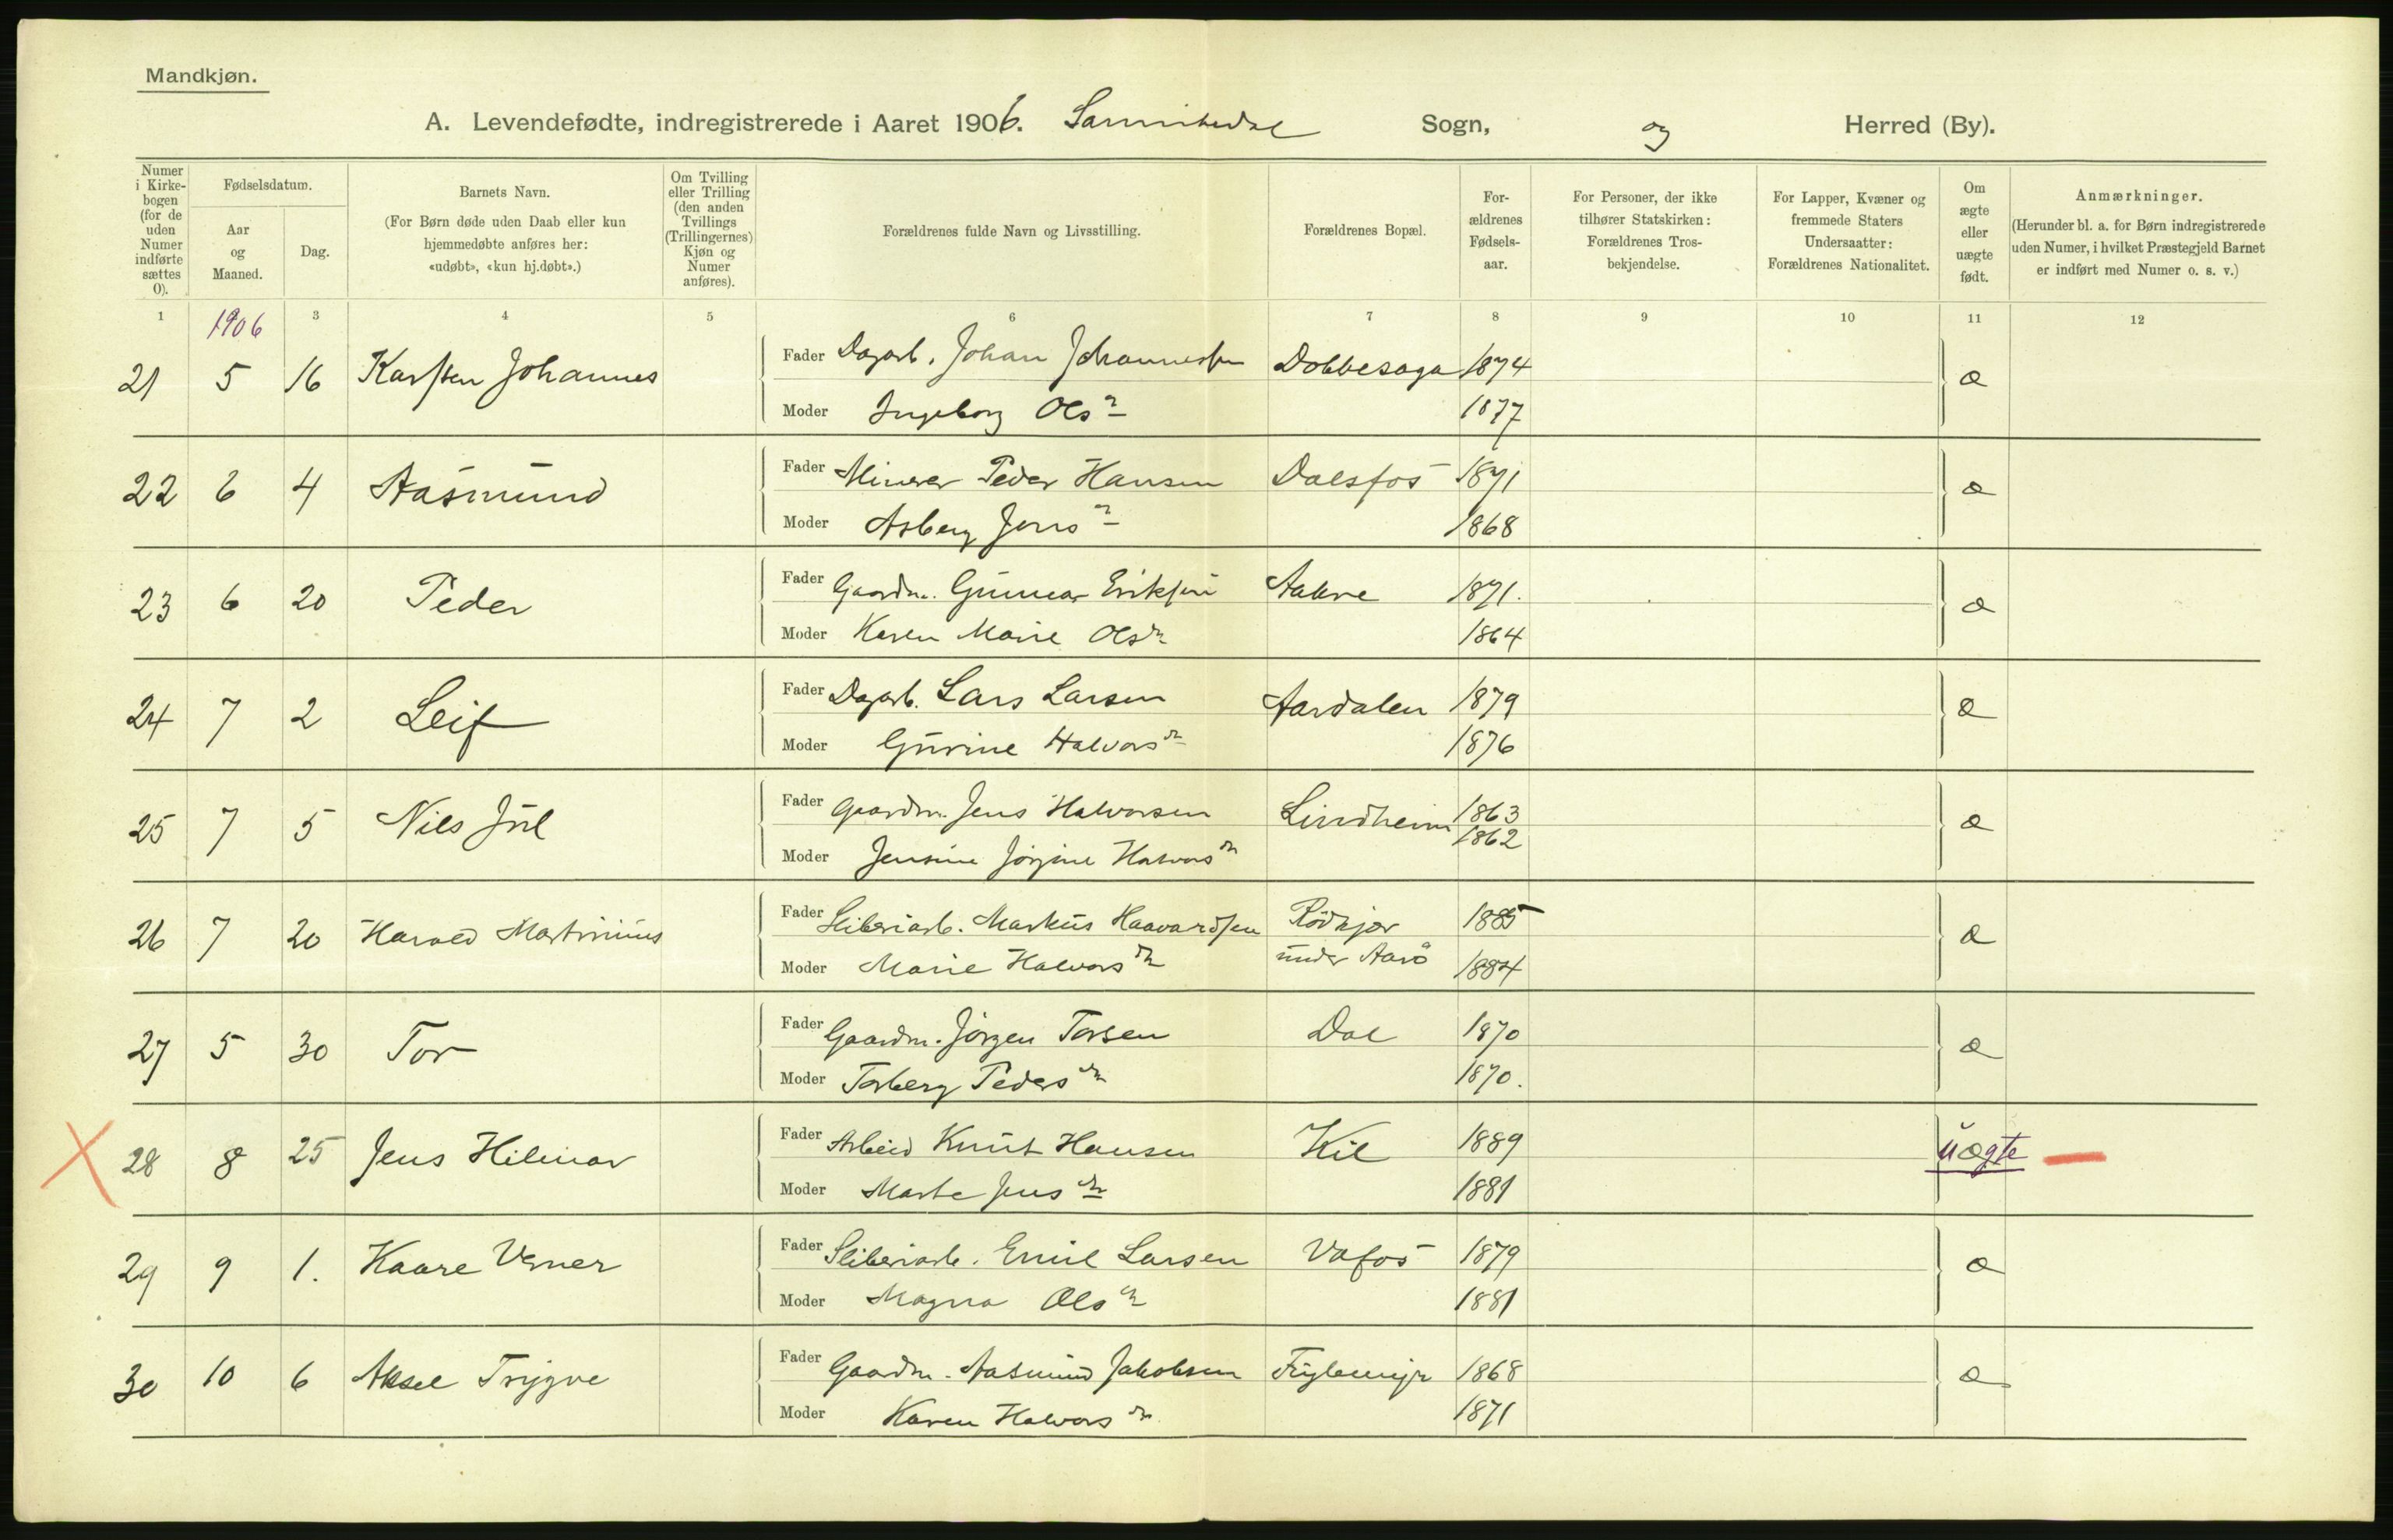 Mandkjøn.
A. Levendefødte, indregistrerede i Aaret 1906. Sannikedal Sogn, og Herred (By).
Numer i Kirkebogen (for de uden Numer indførte sættes 0).
Fødselsdatum.
Aar og Maaned.
Dag.
Barnets Navn.
(For Børn døde uden Daab eller kun hjemmedøbte anføres her: «udøbt», «kun hj.døbt».)
Om Tvilling eller Trilling (den anden Tvillings (Trillingernes) Kjøn og Numer anføres).
Forældrenes fulde Navn og Livsstilling.
Forældrenes Bopæl.
Forældrenes Fødselsaar.
For Personer, der ikke tilhører Statskirken: Forældrenes Trosbekjendelse.
For Lapper, Kvæner og fremmede Staters Undersaatter: Forældrenes Nationalitet.
Om ægte eller uægte født.
Anmærkninger.
(Herunder bl. a. for Børn indregistrerede uden Numer, i hvilket Præstegjeld Barnet er indført med Numer o. s. v.)
1 3 4 5 6 7 8 9 10 11 12
1906
21 5 16 Karsten Johannes Fader Dagarb. Johan Johannessen Dobbesaga 1874 æ
Moder Ingeborg Olsdr 1877
22 6 4 Aasmund Fader Minerer Peder Hansen Dalsfos 1871 æ
Moder Asberg Jensdr 1868
23 6 20 Peder Fader Gaardm. Gunnar Eriksen Aakre 1871. æ
Moder Karen Marie Olsdr 1864
24 7 2 Leif Fader Dagarb. Lars Larsen Aardalen 1879 æ
Moder Gurine Halvorsdr 1876
25 7 5 Nils Jul Fader Gaardm. Jens Halvorsen Lindheim 1863 æ
Moder Jensine Jørgine Halvorsdr 1862
26 7 20 Harald Martinius Fader Sliberiarb. Markus Haavardsen Rødkjær 1885 æ
Moder Marie Halvorsdr under Aarø 1884
27 5 30 Tor Fader Gaardm. Jörgen Torsen Dal 1870 æ
Moder Torberg Pedersdr 1870.
28 8 25 Jens Hilmar Fader Arbeid Knut Hansen Kil 1889 uægte
Moder Marte Jensdr 1881
29 9 1. Kaare Verner Fader Sliberiarb. Emil Larsen Vafos 1879 æ
Moder Magna Olsdr 1881
30 10 6 Aksel Trygve Fader Gaardm. Aasmund Jakobsen Fuglemyr 1868 æ
Moder Karen Halvorsdr 1871